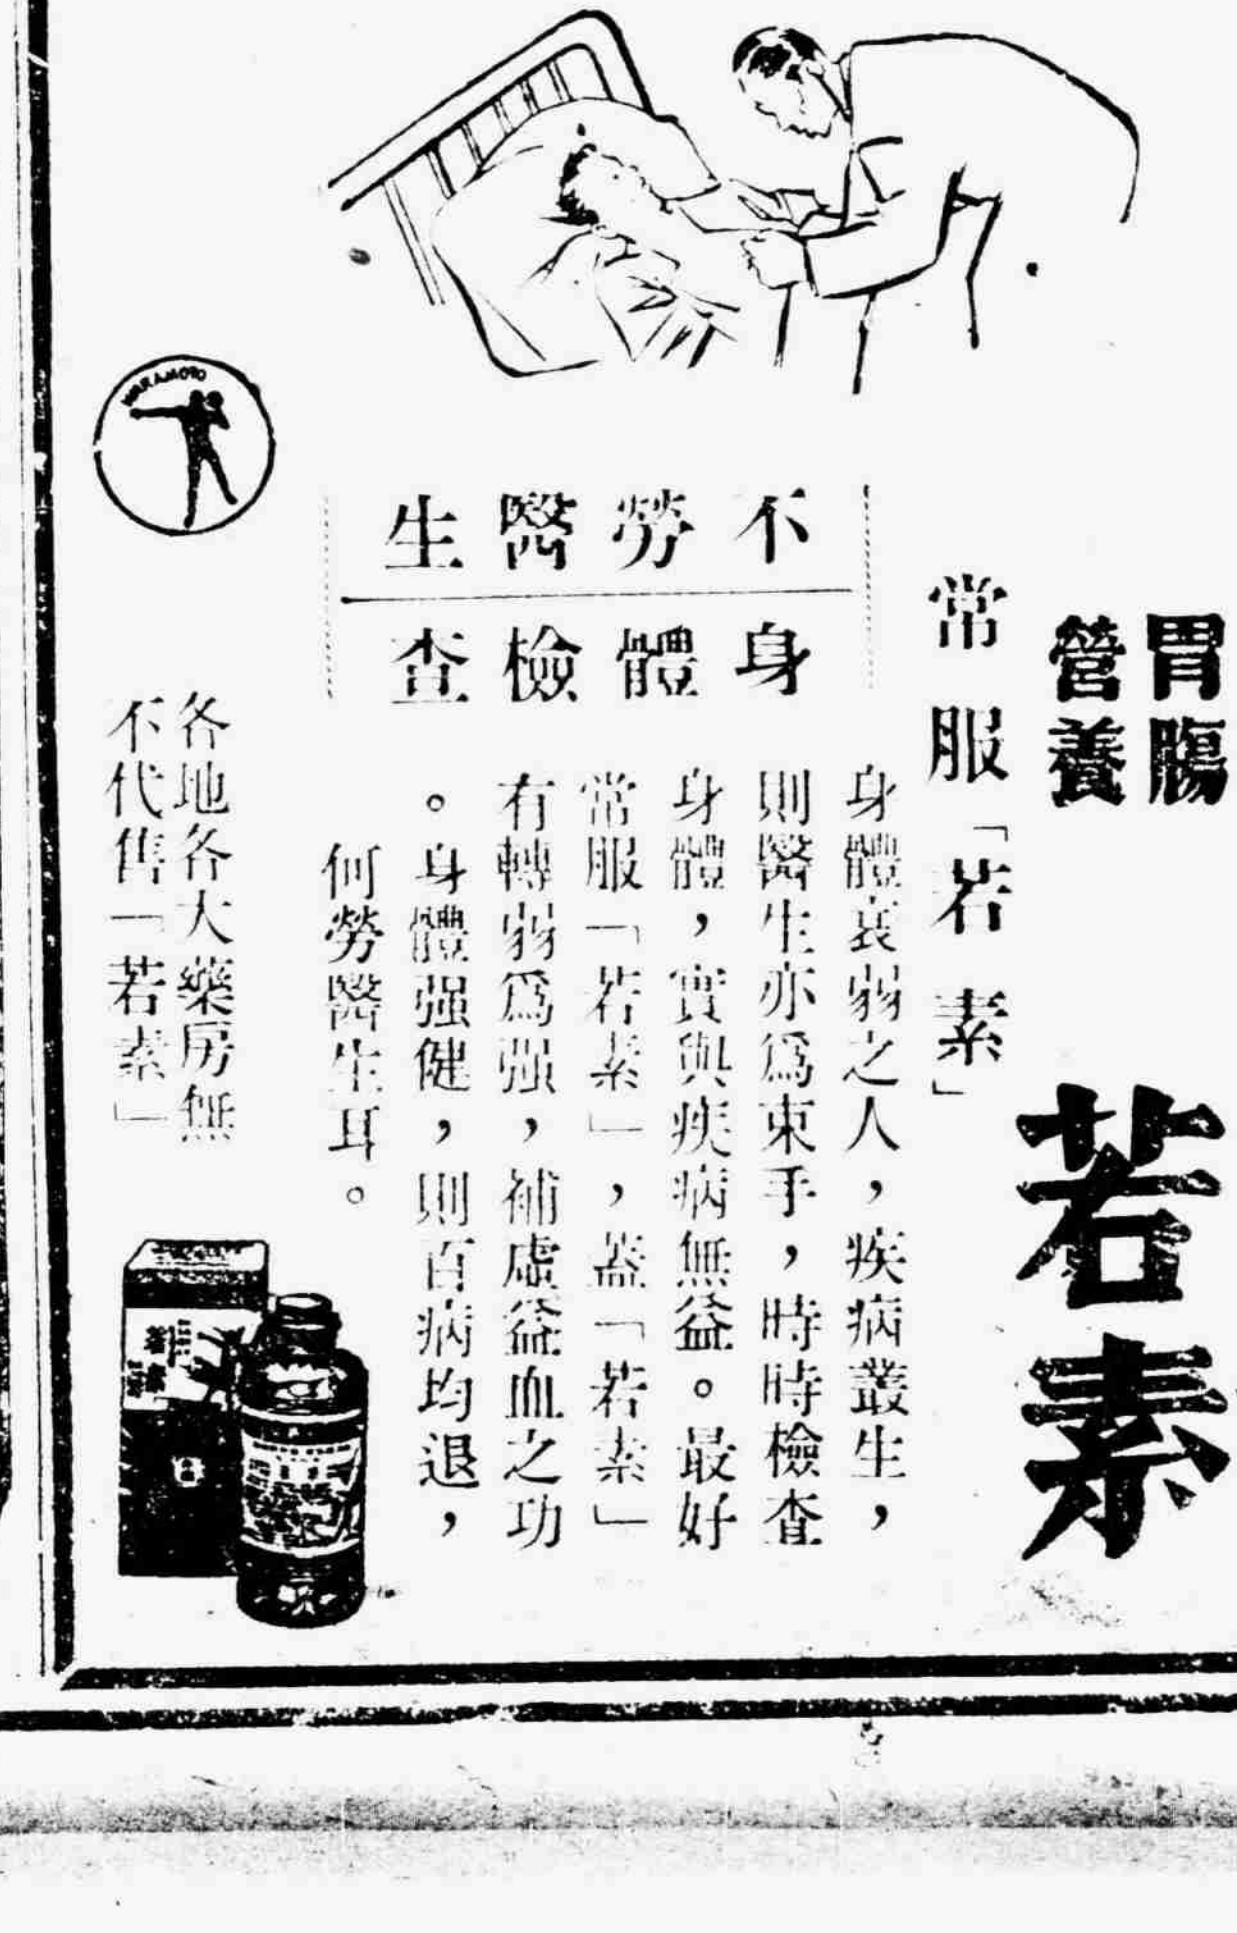 胃腸
營養
若素
常服「若素」
不勞醫生
身體檢查
身體衰弱之人，疾病叢生，
則醫生亦爲束手，時時檢查
身體，實與疾病無益。最好
常服「若素」，蓋「若素」
有轉弱爲强，補虛益血之功
。身體强健，則百病均退，
何勞醫生耳。
各地各大藥房無
不代售「若素」
WAKAMOTO